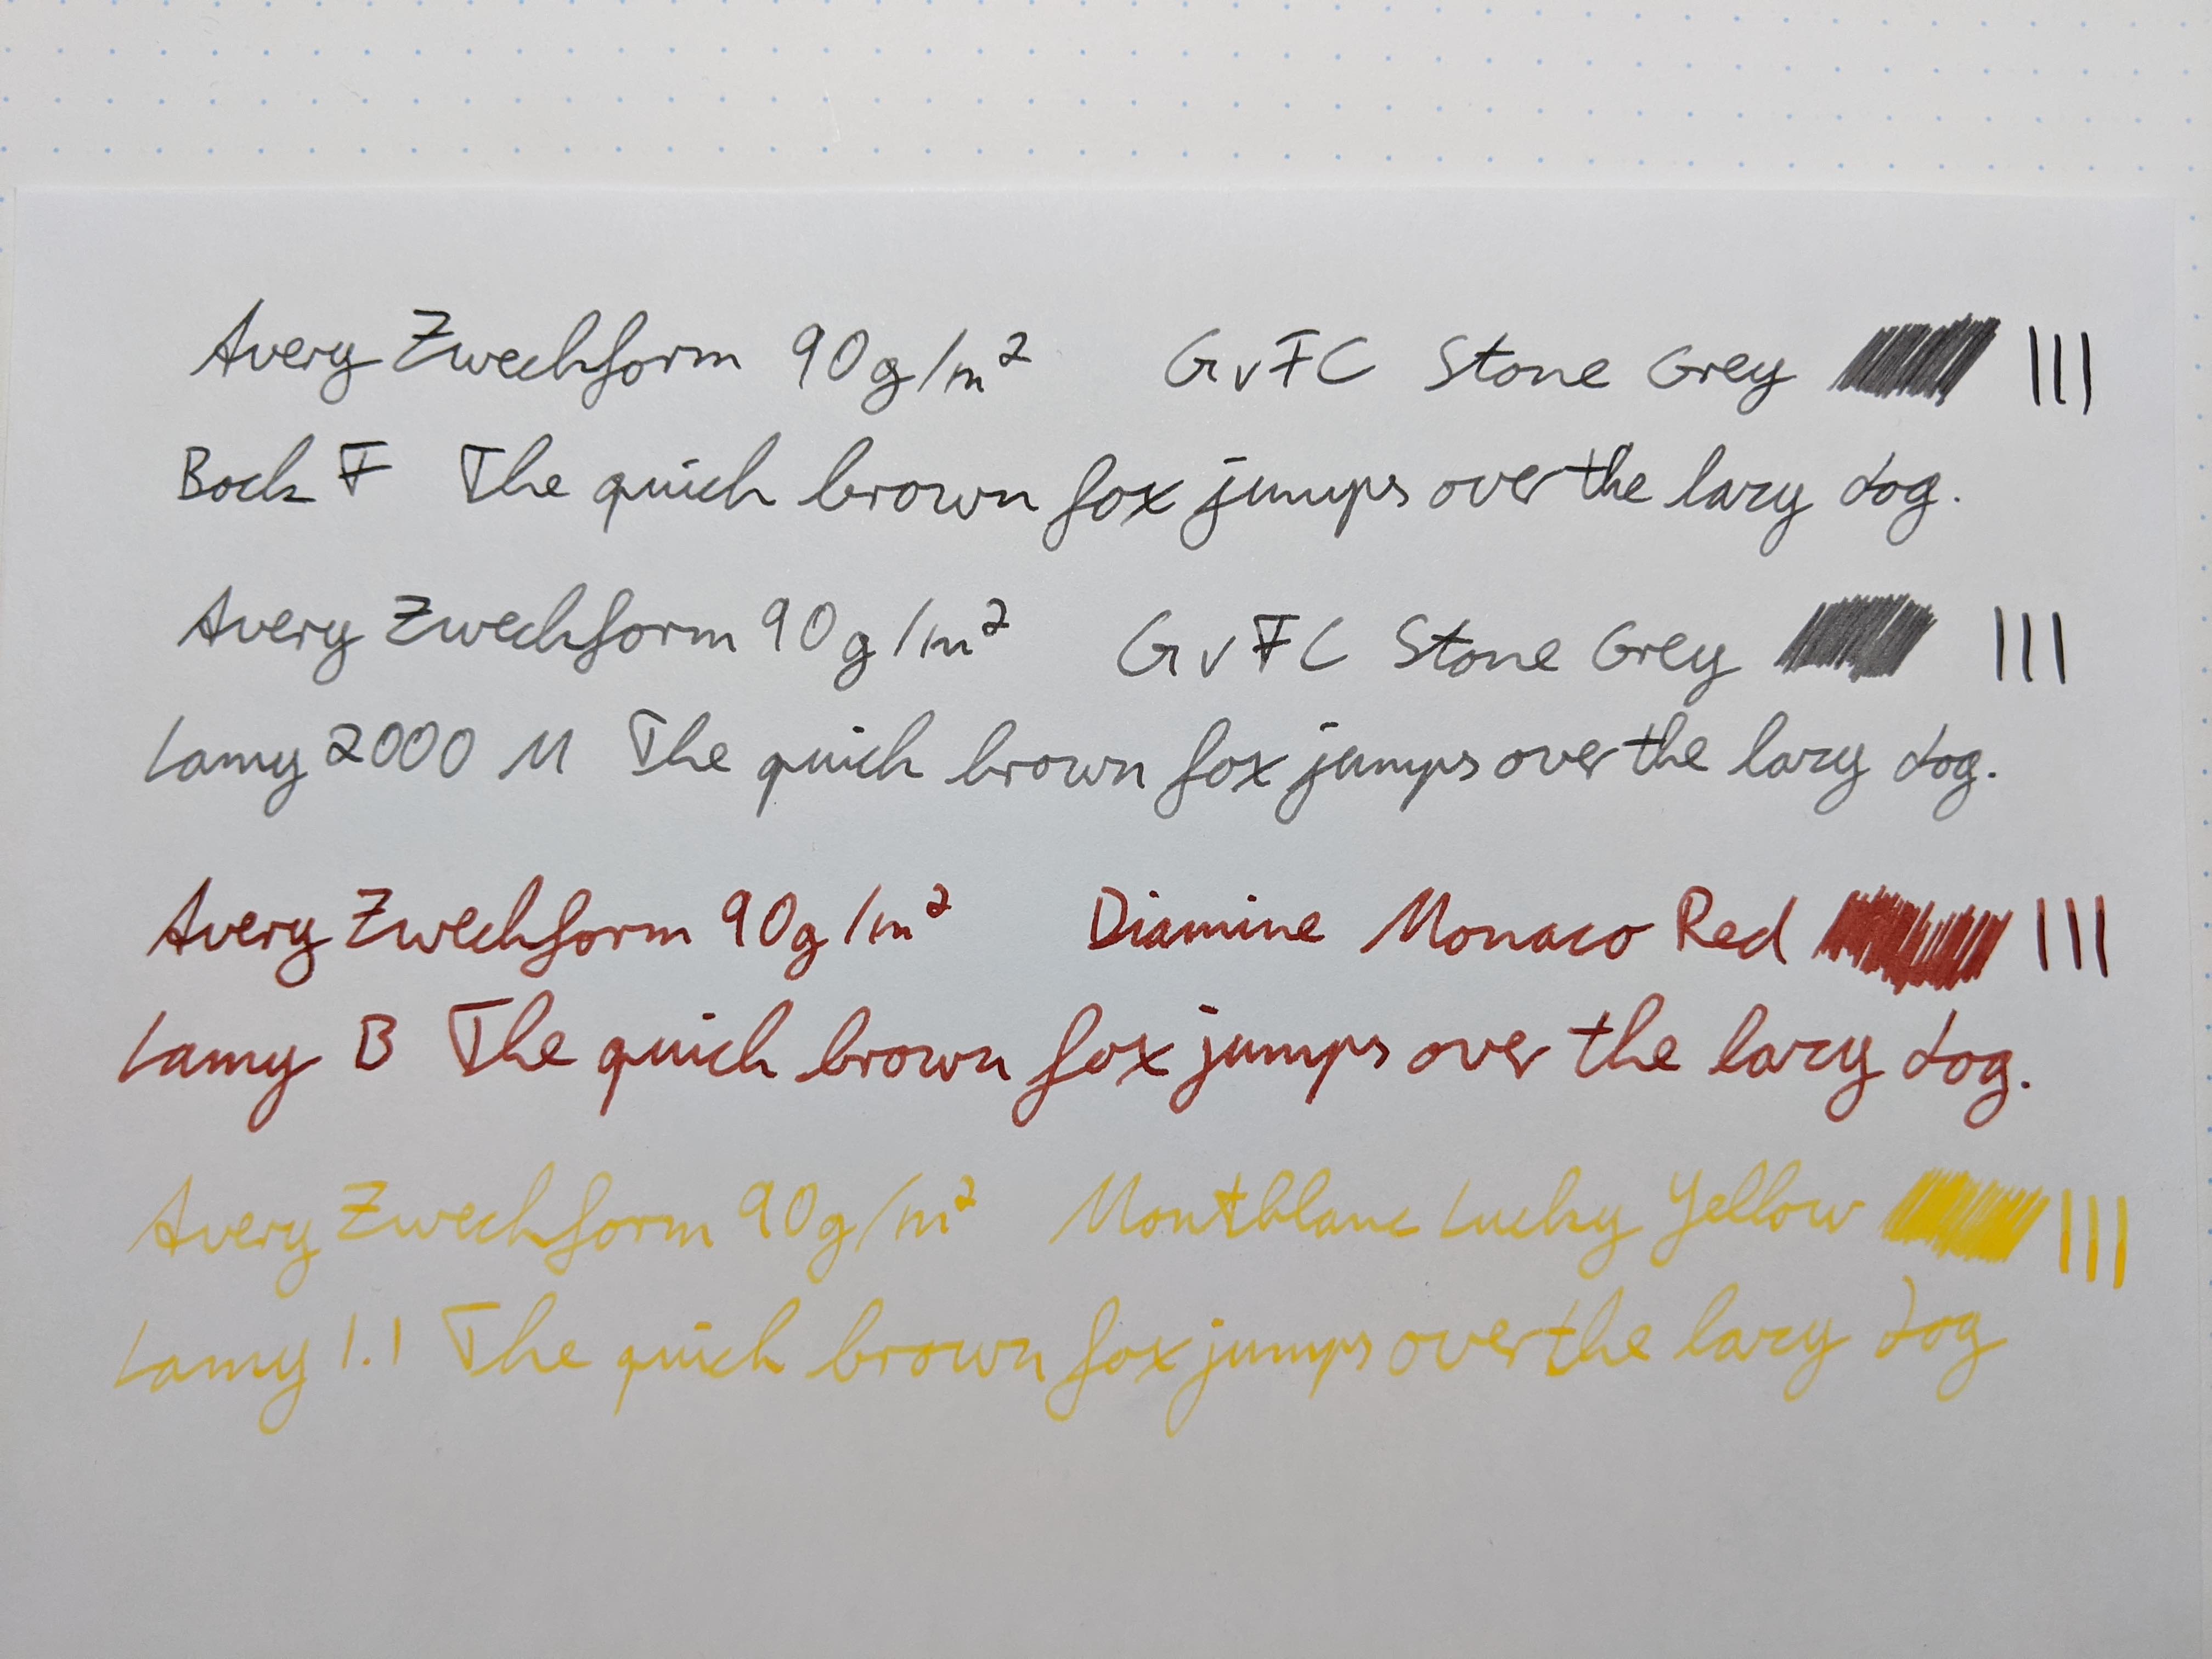 Avery Zweckform 90g/m² GvFC Stone Grey
Bock F The quick brown fox jumps over the lazy dog.
Avery Zweckform 90g/m² GvFC Stone Grey
Lamy 2000 M The quick brown fox jumps over the lazy dog.
Avery Zweckform 90g/m² Diamine Monaco Red
Lamy B The quick brown fox jumps over the lazy dog.
Avery Zweckform 90g/m² Montblanc Lucky Yellow
Lamy 1.1 The quick brown fox jumps over the lazy dog